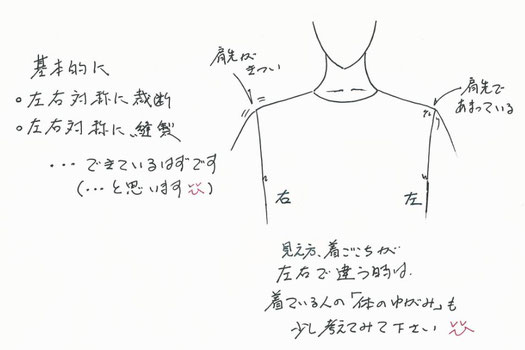 基本的に
○左右対称に裁断
○左右対称に縫製
・・・できているはずです
(・・・と思います)
肩先が
きつい
肩先で
あまっている
右
左
見え方、着ごこちが
左右で違う時は、
着ている人の「体のゆがみ」も
少し考えてみて下さい